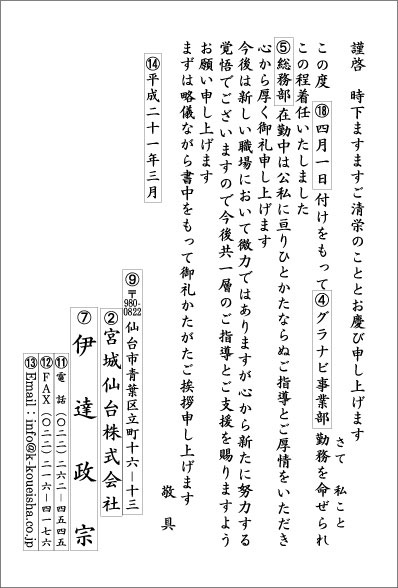 謹啓　時下ますますご清栄のこととお慶び申し上げます
さて　私こと
この度　⑱四月一日付けをもって④グラナビ事業部勤務を命ぜられ
この程着任いたしました
⑤総務部在勤中は公私に亘りひとかたならぬご指導とご厚情をいただき
心から厚く御礼申し上げます
今後は新しい職場において微力ではありますが心から新たに努力する
覚悟でございますので今後共一層のご指導とご支援を賜りますよう
お願い申し上げます
まずは略儀ながら書中をもって御礼かたがたご挨拶申し上げます
敬具
⑭平成二十一年三月
⑨〒980-0822仙台市青葉区立町十六－十三
②宮城仙台株式会社
⑦伊達政宗
⑪電話（〇二二）二六二－四五四五
⑫ＦＡＸ（〇二二）二一六－四一七六
⑬Email：info@k-koueisha.co.jp